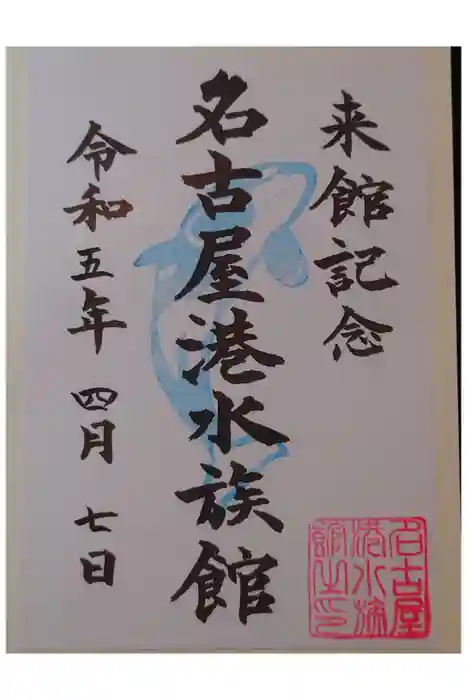 来館記念
名古屋港水族館
令和五年 四月 七日
名古屋
港水族
館之印